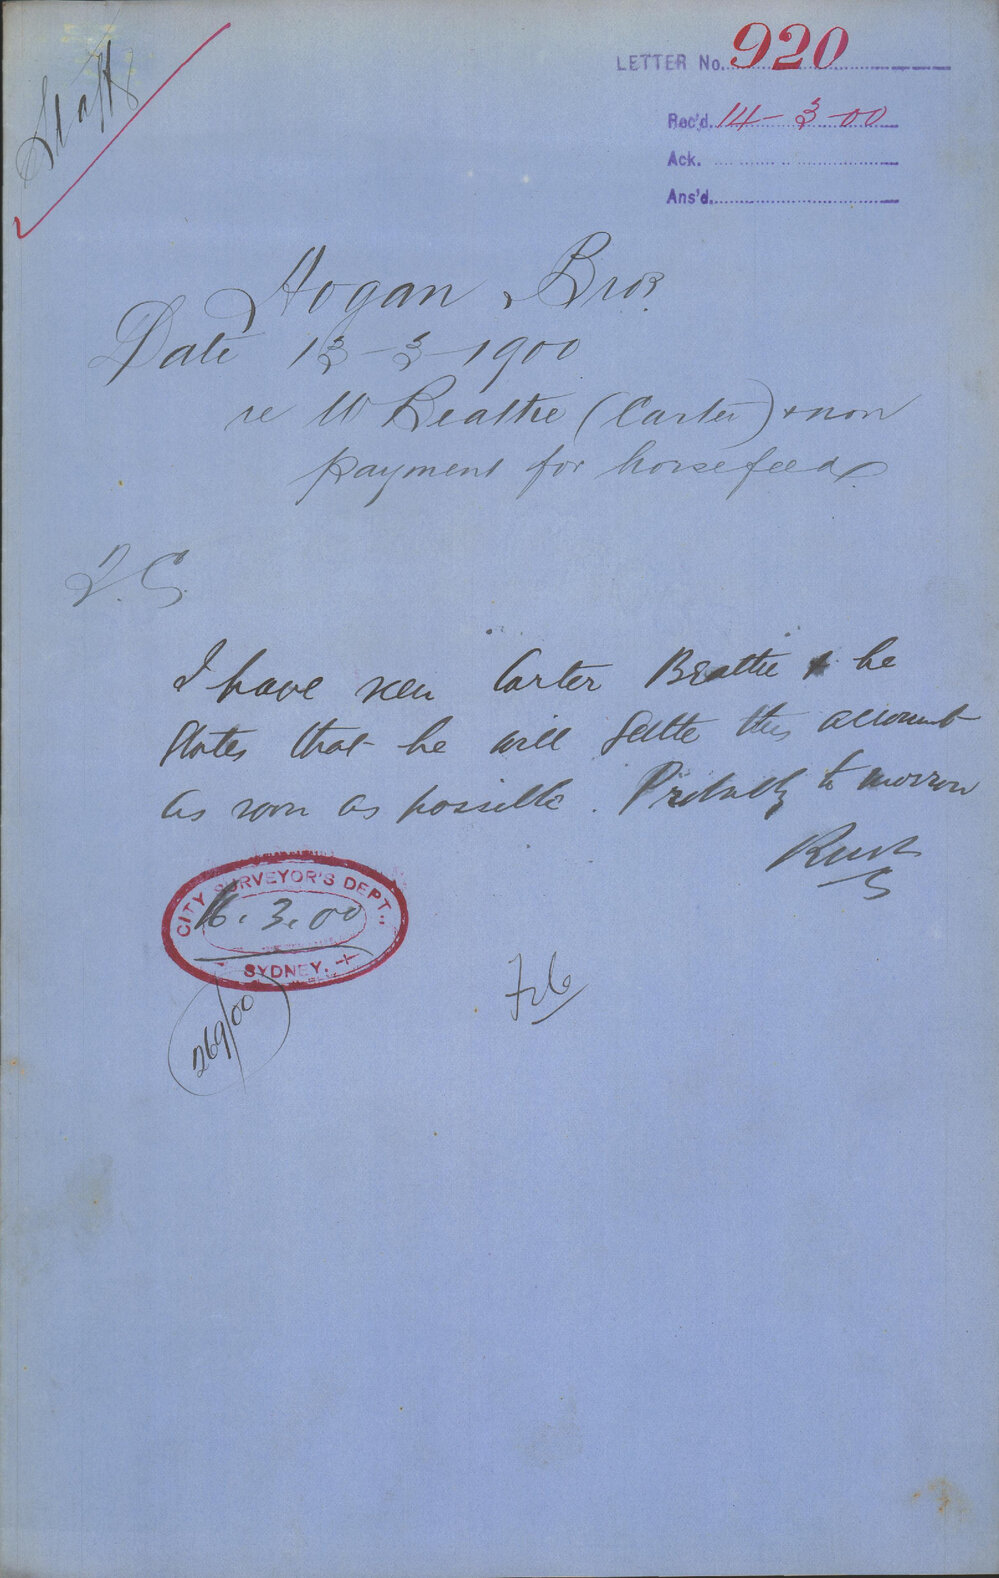 Staff
LETTER No. 920
Rec'd. 14-3-00
Ack.
Ans'd.
Hogan Bros
Date 13-3-1900
re W Beattie (Carter) & non
payment for horsefeed
I have seen Carter Beattie & he
states that he will settle this account
as soon as possible. Probably to morrow
CITY SURVEYOR'S DEPT.,
16.3.00
SYDNEY.
269/00